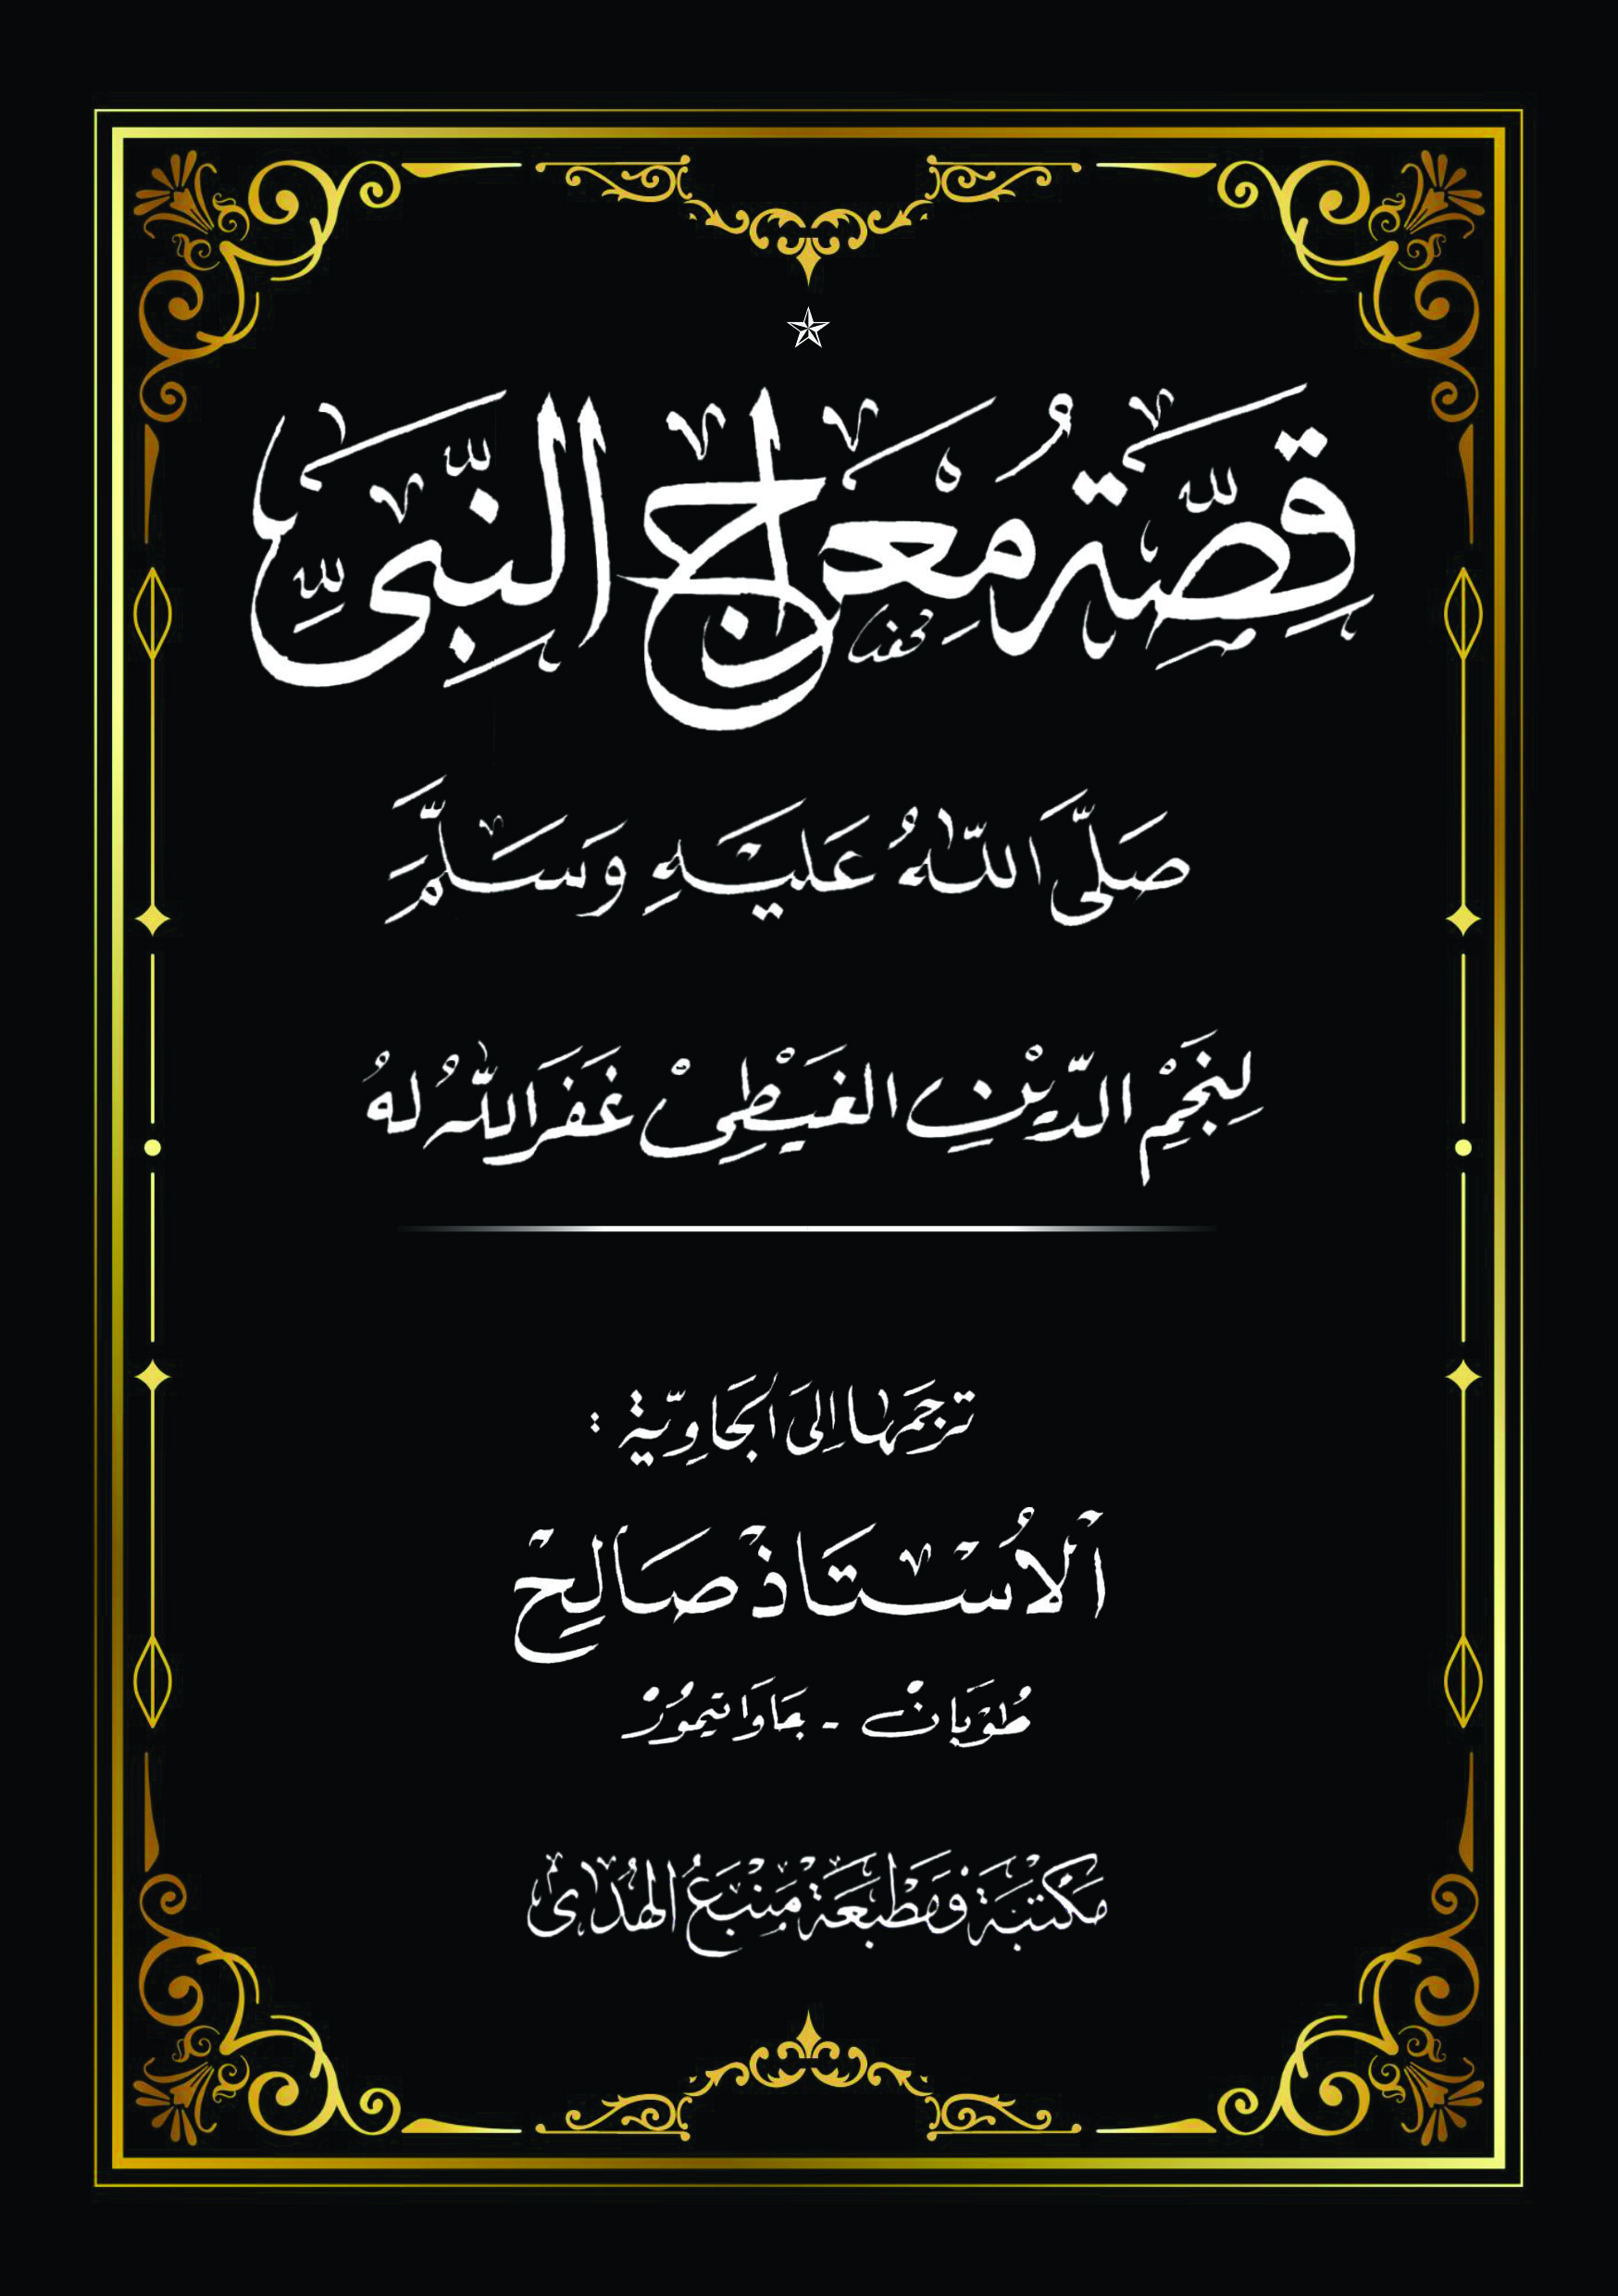 قِصَّةُ مِعْرَاجِ النَّبِيِّ
صَلَّى اللهُ عَلَيْهِ وَسَلَّمَ
لِنَجْمِ الدِّيْنِ الغَيْطِىْ غَفَرَ اللهُ لَهُ
تَرْجَمَهَا إِلَى الْجَاوِيَّةِ :
اَلْاُسْتَاذْ صَالِحْ
طُوْبَانْ - جَاوَا تِيمُوْرْ
مَكْتَبَةْ وَمَطْبَعَةْ مَنْبَعُ الْهُدَىٰ